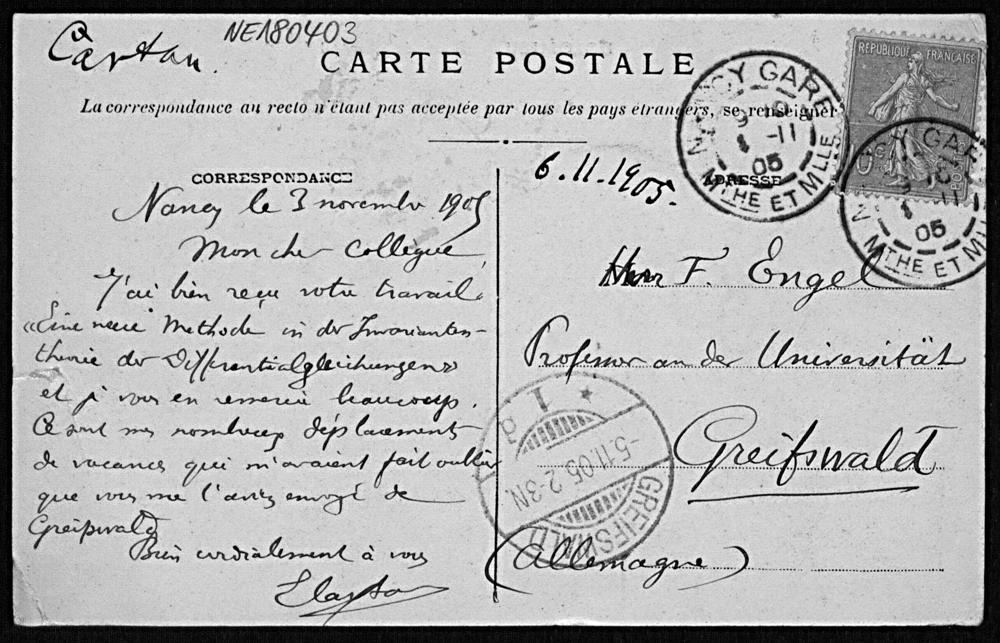 Cartan.
NE180403
CARTE POSTALE
La correspondance au recto n'étant pas acceptée par tous les pays étrangers, se renseigner
CORRESPONDANCE
Nancy le 3 novembre 1905
Mon cher Collègue,
J'ai bien reçu votre travail
«Eine neue Methode in der Invarianten-
theorie der Differentialgleichungen»
et je vous en remercie beaucoup.
Ce sont mes nombreux déplacements
de vacances qui m'avaient fait oublier
que vous me l'aviez envoyé de
Greifswald
Bien cordialement à vous
E Cartan
6.11.1905.
ADRESSE
Herr F. Engel
Professor an der Universität
Greifswald
(Allemagne)
NANCY GARE
-11
05
MTHE ET MLLE
REPUBLIQUE FRANÇAISE
POSTES
GARE
11
05
MTHE ET MLLE
GREIFSWALD
-5.11.05.2-3N.
1